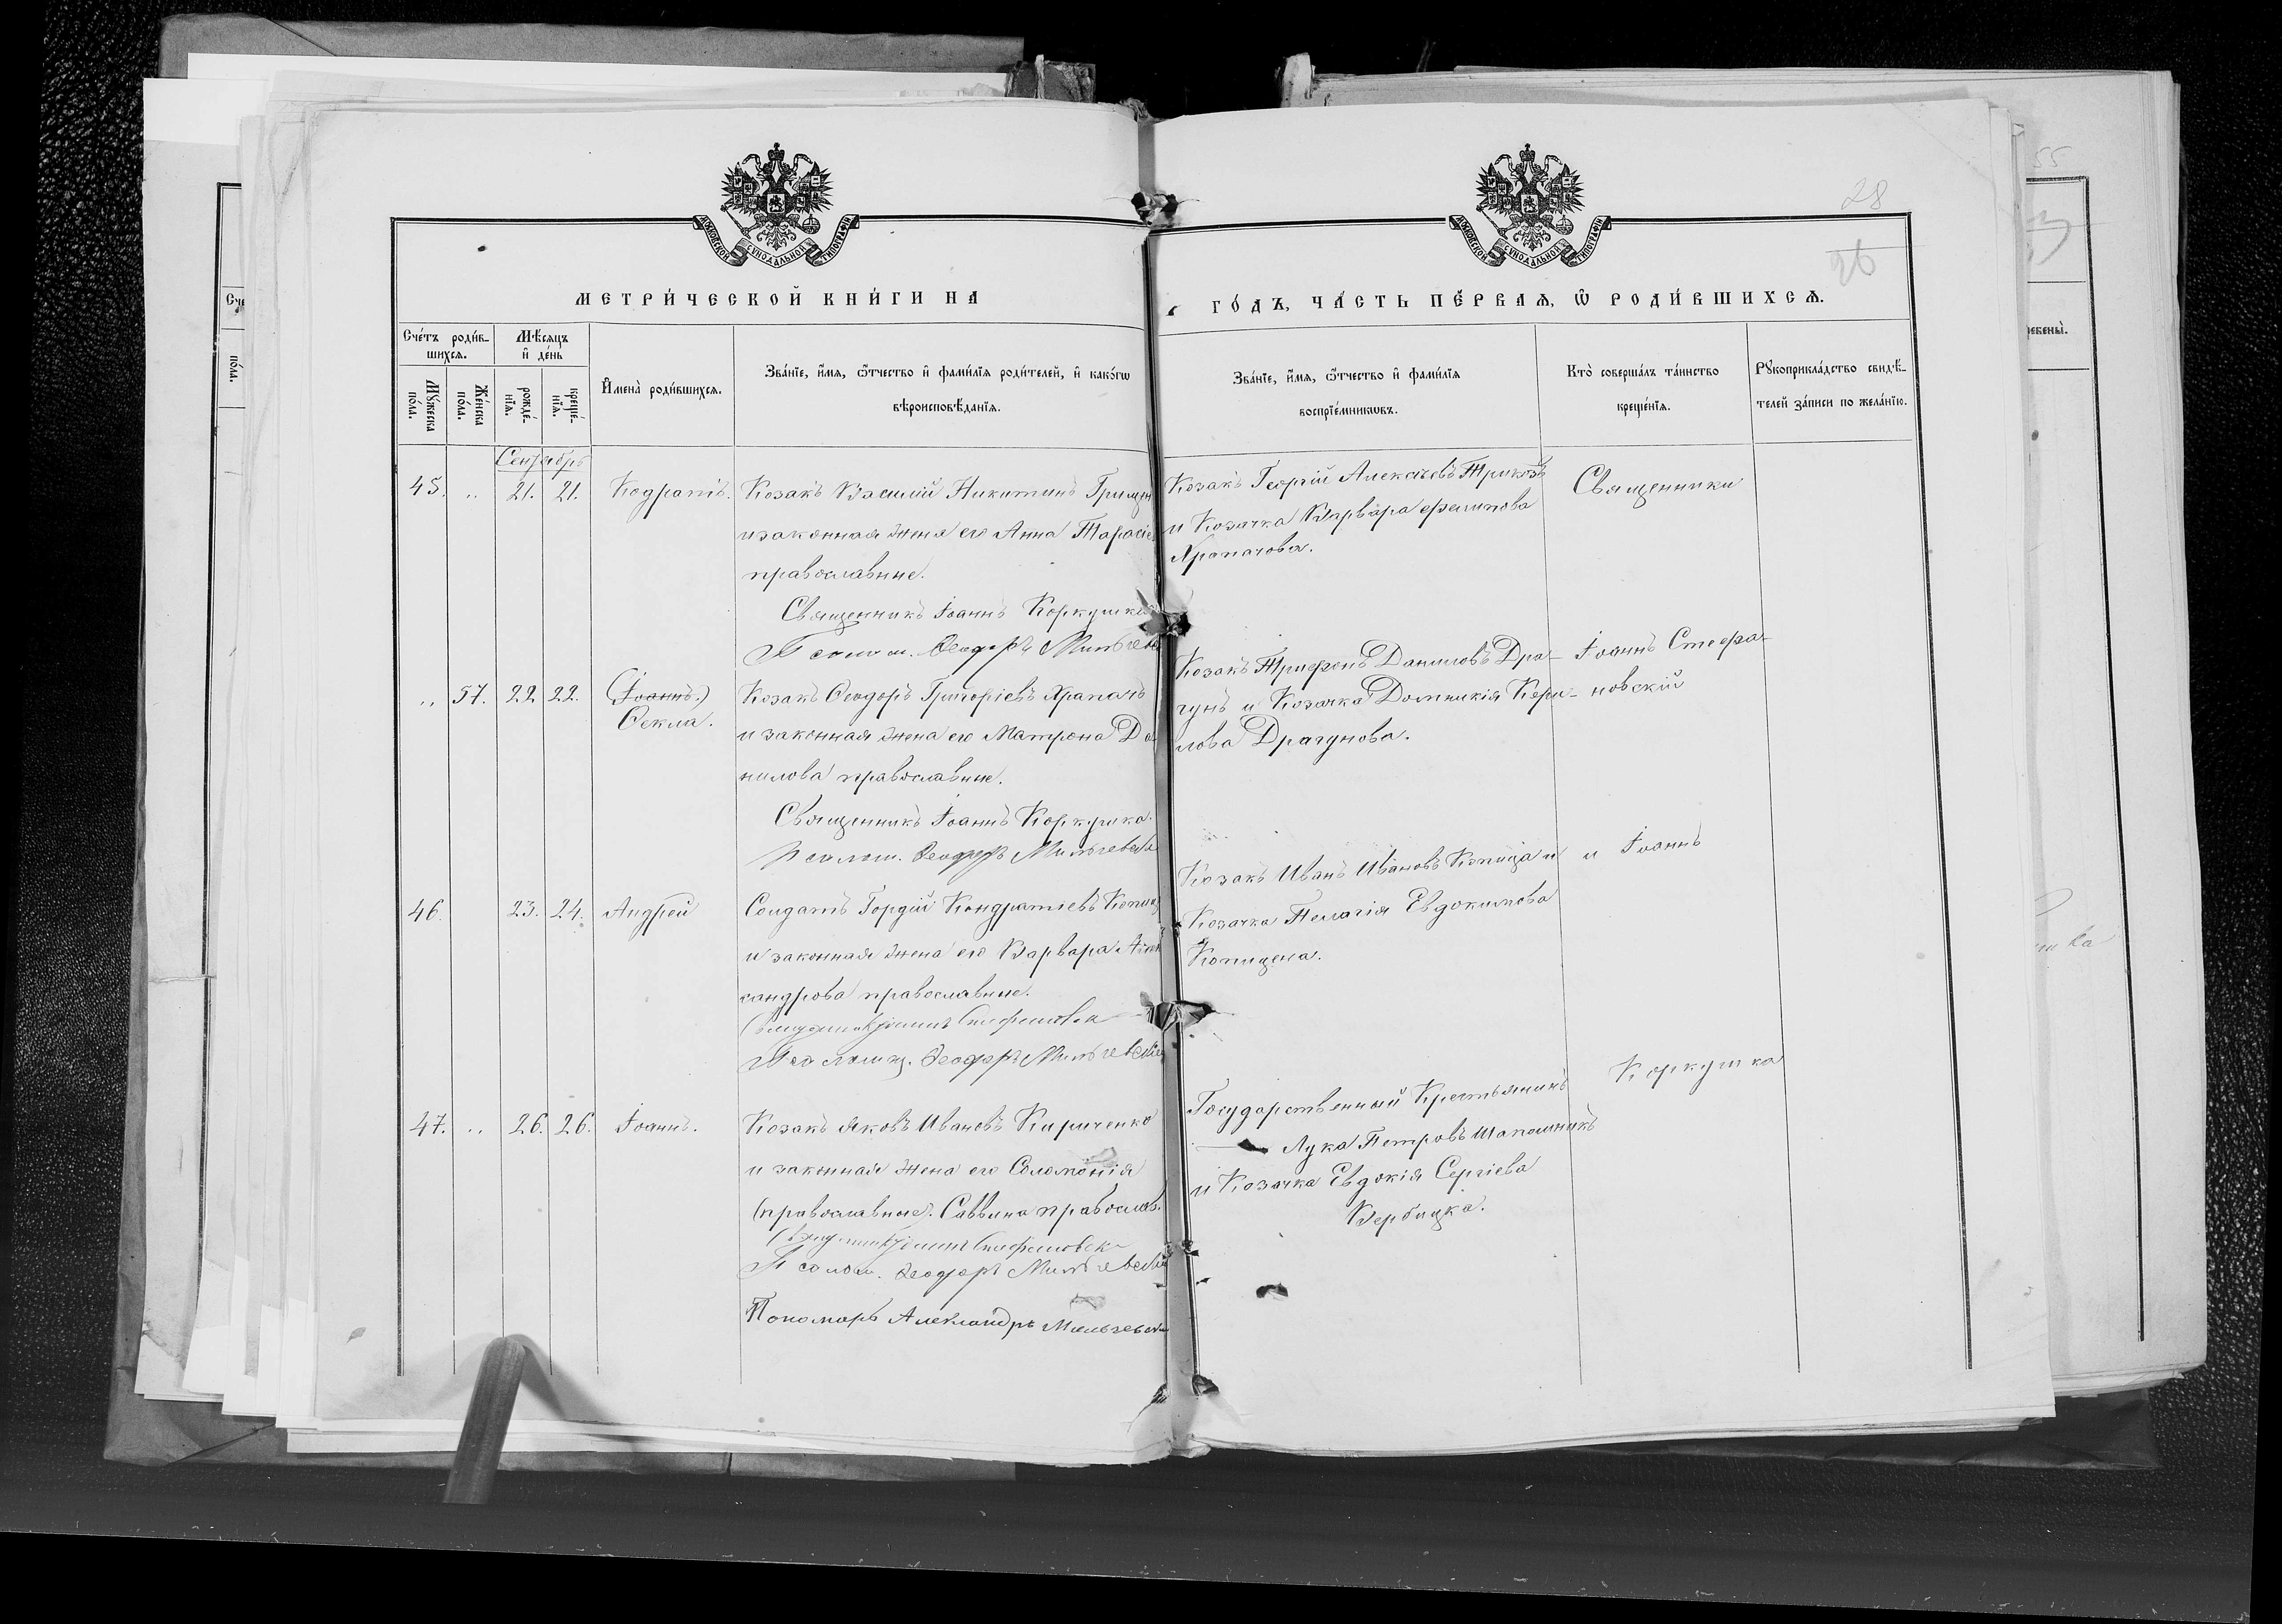 МОСКОВСКОЙ СѴНОДАЛЬНОЙ ТИПОГРАФІИ
МОСКОВСКОЙ СѴНОДАЛЬНОЙ ТИПОГРАФІИ
28
26
МЕТРИ́ЧЕСКОЙ КНИ́ГИ НА
ГО́ДЪ, ЧА́СТЬ ПЕ́РВАѦ, Ѡ҆ РОДИ́ВШИХСѦ.
Сче́тъ роди́в-
шихсѧ.
Мѣ́сѧцъ
и҆ де́нь
Мꙋ́жеска
по́ла.
Же́нска
по́ла.
рожде́-
нїѧ.
креще́-
нїѧ.
И҆мена̀ роди́вшихсѧ.
Зва́нїе, и҆́мѧ, ѻ҆́тчество и҆ фами́лїѧ роди́телей, и҆ како́гѡ
вѣроисповѣ́данїѧ.
Зва́нїе, и҆́мѧ, ѻ҆́тчество и҆ фами́лїѧ
воспрїе́мникѡвъ.
Кто̀ соверша́лъ та́инство
креще́нїѧ.
Рꙋкоприкла́дство свидѣ́-
телей за́писи по жела́нїю.
Сентябрь
45. „ 21. 21. Кодратъ.
Козакъ Василій Никитинъ
и законная жена его Анна
православные.
Священникъ Іоаннъ
Псалом. Ѳеодоръ
Козакъ Георгій Алексѣевъ Трикозъ
и Козачка Варвара Филипова
Храпачова.
Священники
„ 57. 22. 22. (Іоаннъ.)
Ѳекла.
Козакъ Ѳеодоръ Григоріевъ Храпачъ
и законная жена его Матрона Да
нилова православные.
Священникъ Іоаннъ Коркушка.
Псалом. Ѳеодоръ
Козакъ Трифонъ Даниловъ Дра-
гунъ и Козачка Домникія Кири-
лова Драгунова.
Іоаннъ Стефа-
новскій
46. 23. 24. Андрей
Солдатъ Гордій Кондратіевъ
и законная жена его Варвара Алек
сандрова православные.
Священникъ Іоаннъ Стефановск
Псаломщ. Ѳеодоръ
Козакъ Иванъ Ивановъ Копица и
Козачка Пелагія Евдокимова
Копицена.
и Іоаннъ
47. „ 26. 26. Іоаннъ.
Козакъ Яковъ Ивановъ Кириченко
и законная жена его Соломонія
(православные). Саввина православ.
Священникъ Іоаннъ Стефановск
Псалом. Ѳеодоръ
Пономарь Александръ
Государственный Крестьянинъ
Лука Петровъ Шаполникъ
и Козачка Евдокія Сергіева
Вербицка.
Коркушка